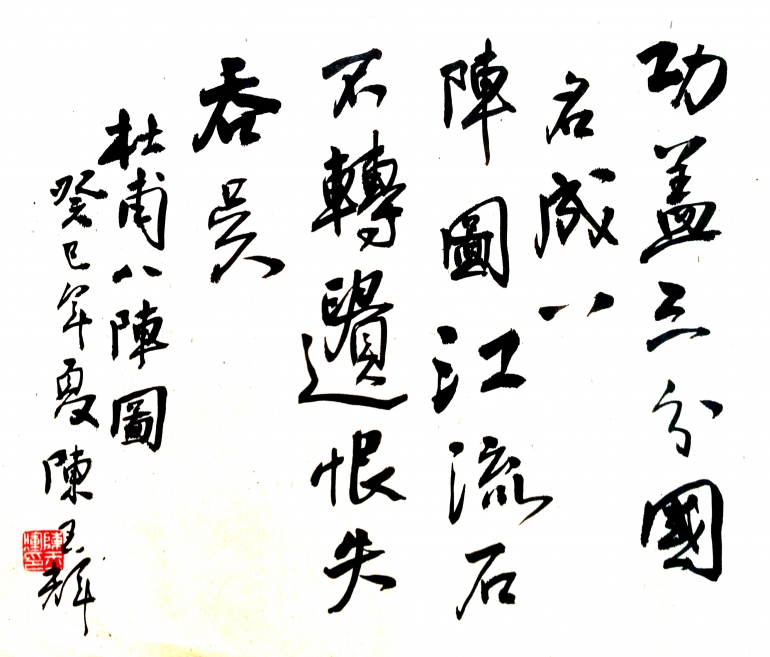 功盖三分國
名成八
陣圖江流石
不轉遺恨失
吞吴
杜甫八陣圖
癸巳年夏陳輝